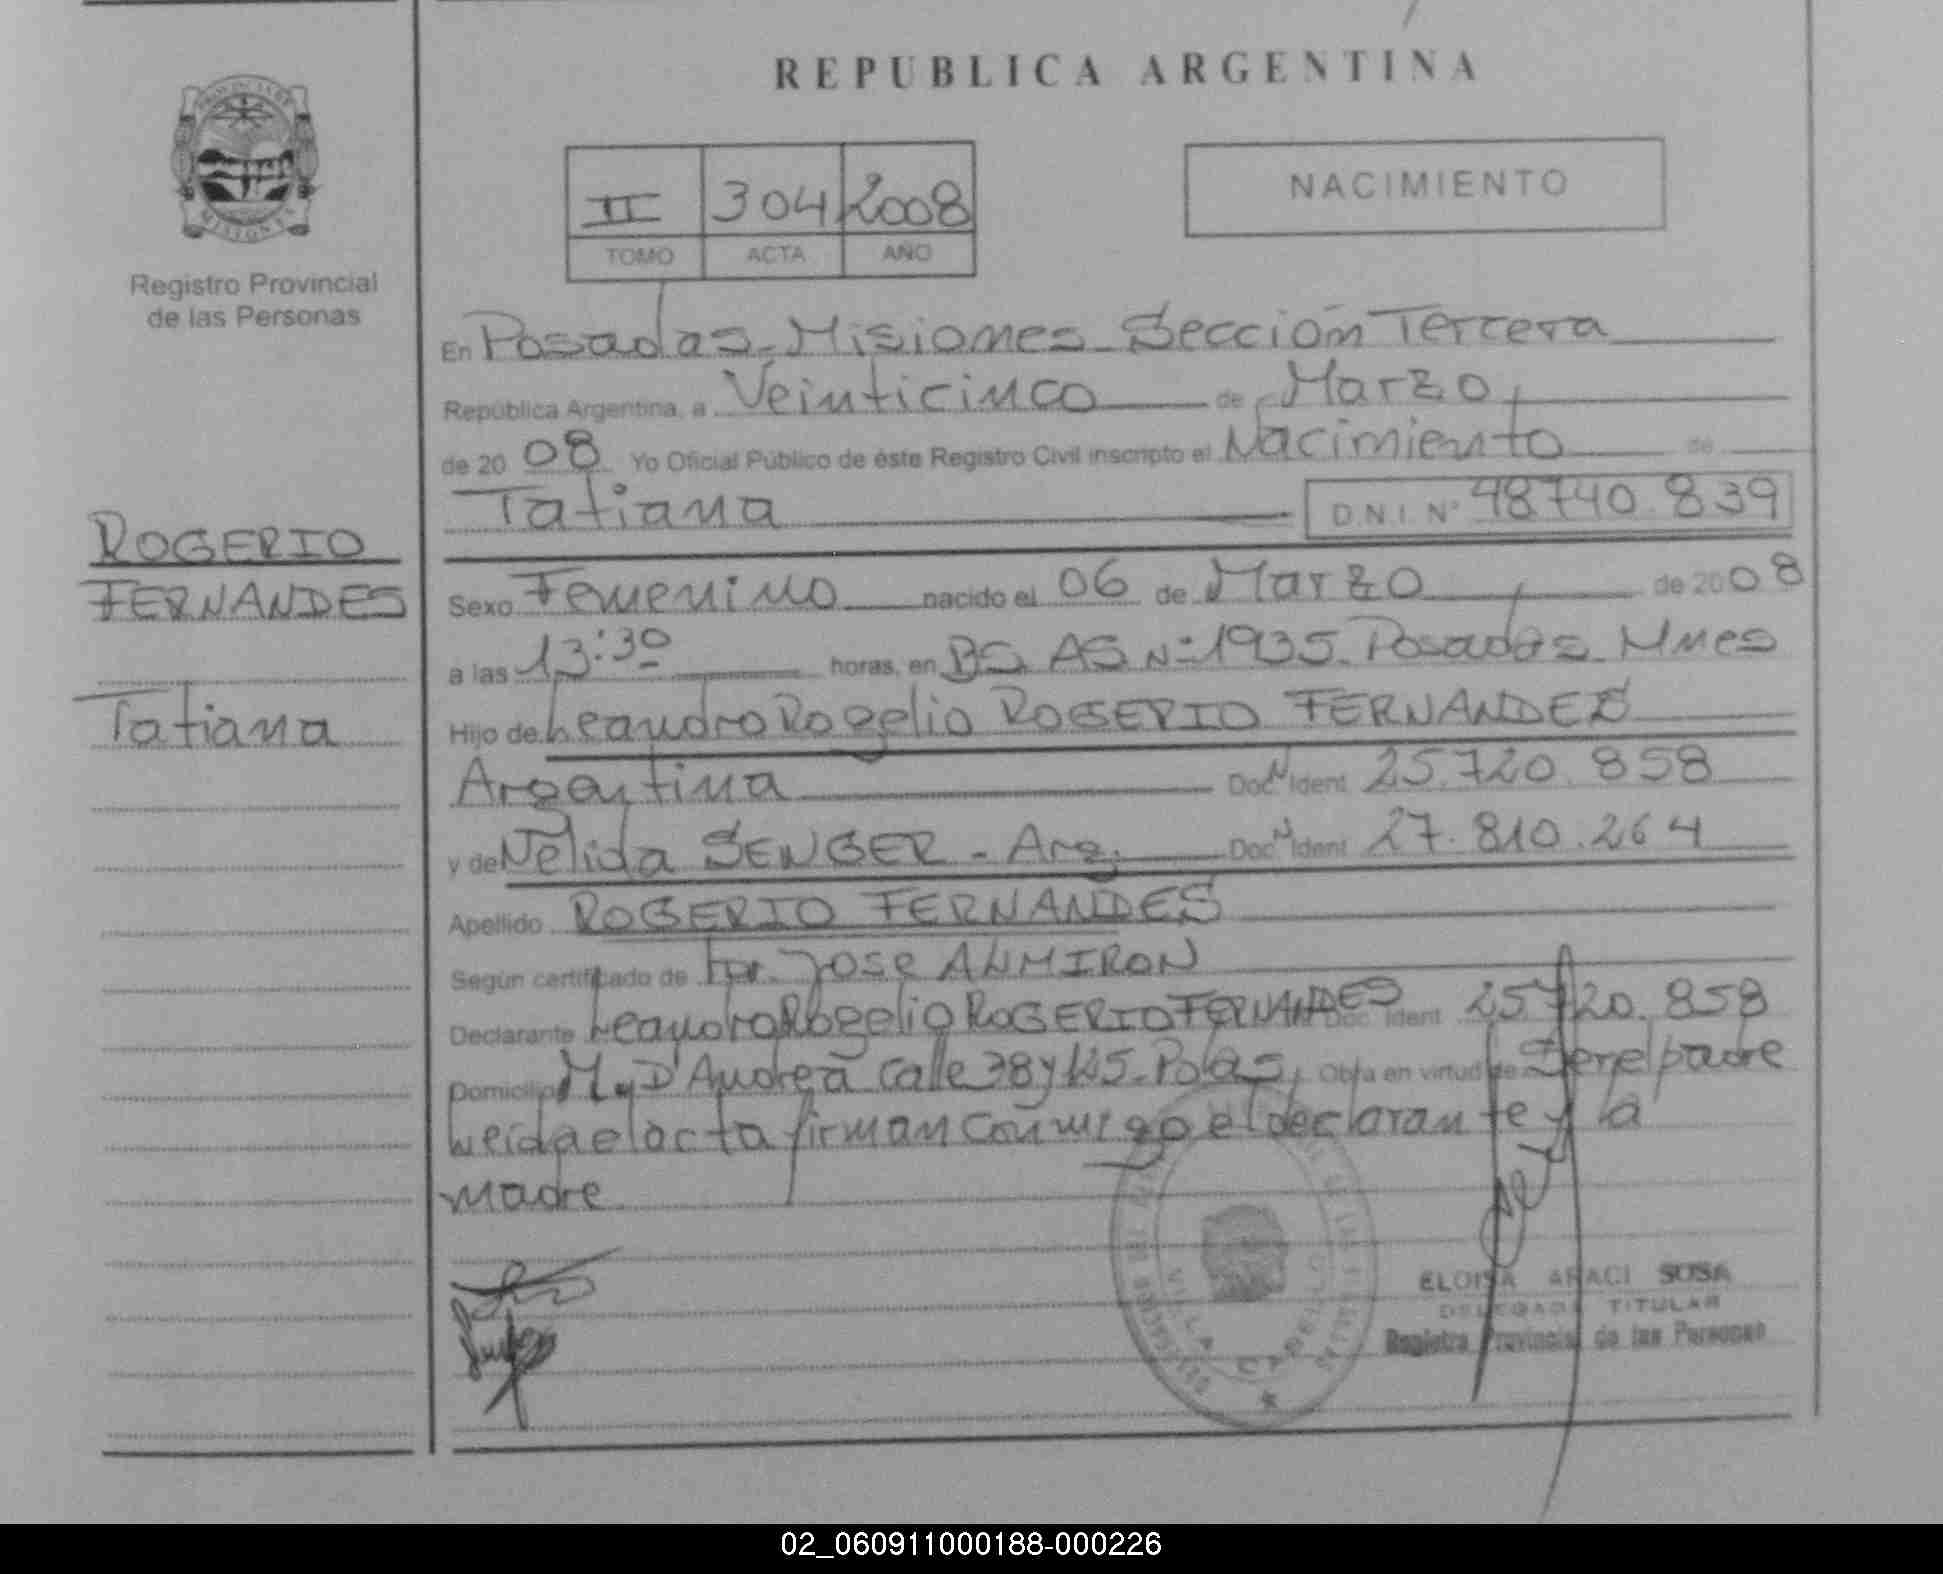 REPUBLICA ARGENTINA
PROVINCIA DE
MISIONES
Registro Provincial
de las Personas
II 304 2008
TOMO ACTA AÑO
NACIMIENTO
En Posadas-Misiones-Sección Tercera
República Argentina, a Veinticinco de Marzo
de 20 08 Yo Oficial Público de éste Registro Civil inscripto el Nacimiento de
Tatiana D.N.I. Nº 48740.839
ROGERIO
FERNANDES
Tatiana
Sexo Femenino nacido el 06 de Marzo de 2008
a las 13:30 horas, en BS. AS Nº 1935. Posadas-Mnes
Hijo de Leandro Rogelio ROGERIO FERNANDES
Argentina Doc N Ident 25.720.858
y de Nélida SENGER - Arg. Doc N Ident 27.810.264
Apellido ROGERIO FERNANDES
Según certificado de Dr. Jose ALMIRON
Declarante Leandro Rogelio ROGERIO FERNANDES Doc Ident 25720.858
Domicilio M. D'Andrea calle 38 y 145-Pdas, Obra en virtud de Ser el padre
Leida el acta firman conmigo el declarante y la
madre
VILLA CABELLO
ELOISA ARACI SOSA
DELEGADA TITULAR
Registro Provincial de las Personas
02_060911000188-000226